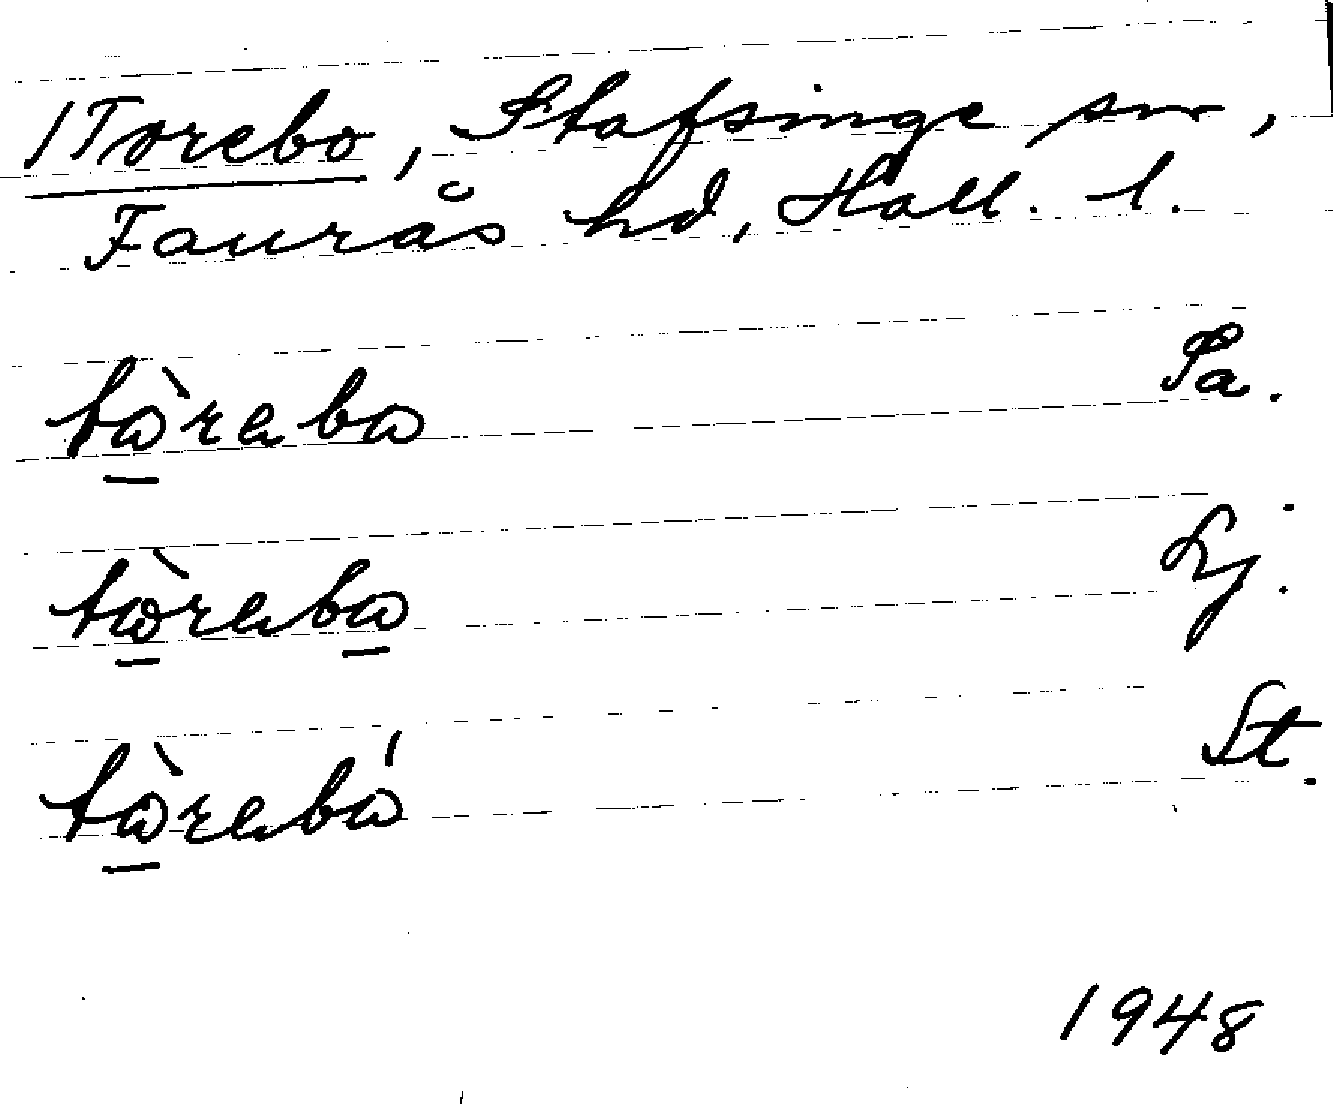 1 Torebo, Stafsinge sn,
Faurås hd, Hall. l.
tò̱rebo Sa.
tò̱rebo̱ Lj.
tò̱rebó St.
1948